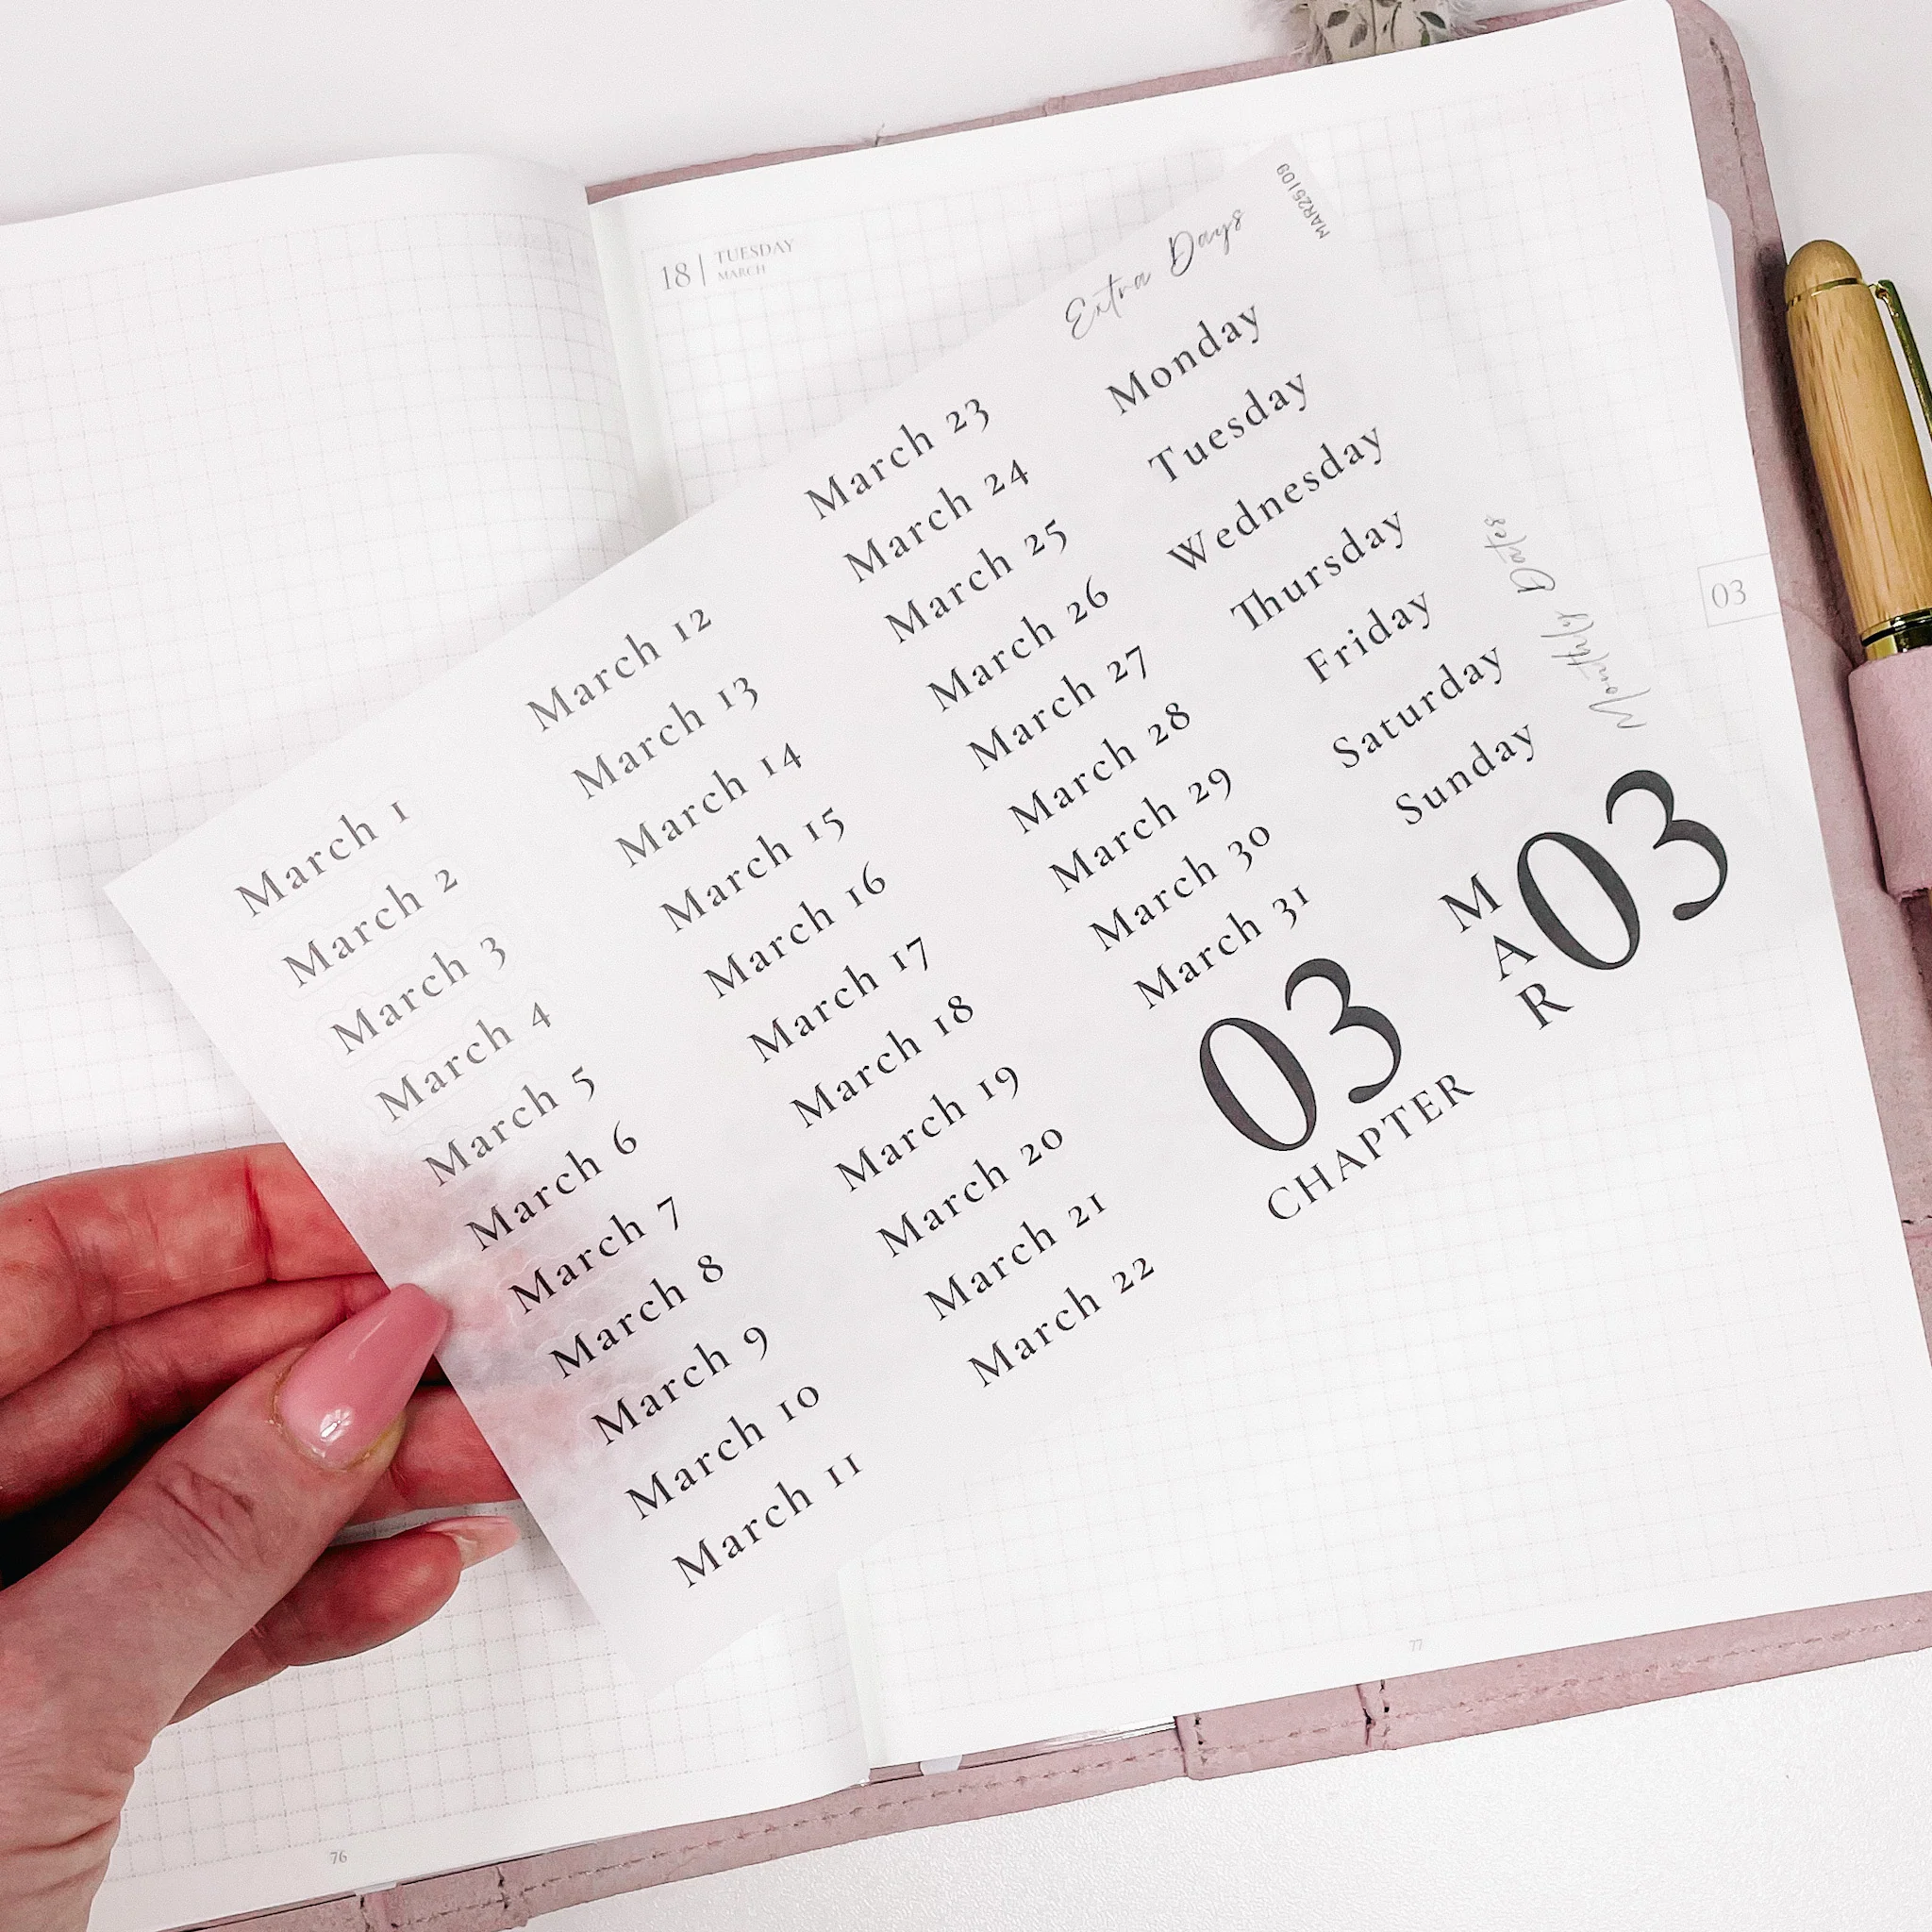 18 | TUESDAY
MARCH
Extra Days
MAR25109
March 1
March 2
March 3
March 4
March 5
March 6
March 7
March 8
March 9
March 10
March 11
March 12
March 13
March 14
March 15
March 16
March 17
March 18
March 19
March 20
March 21
March 22
March 23
March 24
March 25
March 26
March 27
March 28
March 29
March 30
March 31
Monday
Tuesday
Wednesday
Thursday
Friday
Saturday
Sunday
Monthly Dates
03
CHAPTER
MAR
03
03
76
77